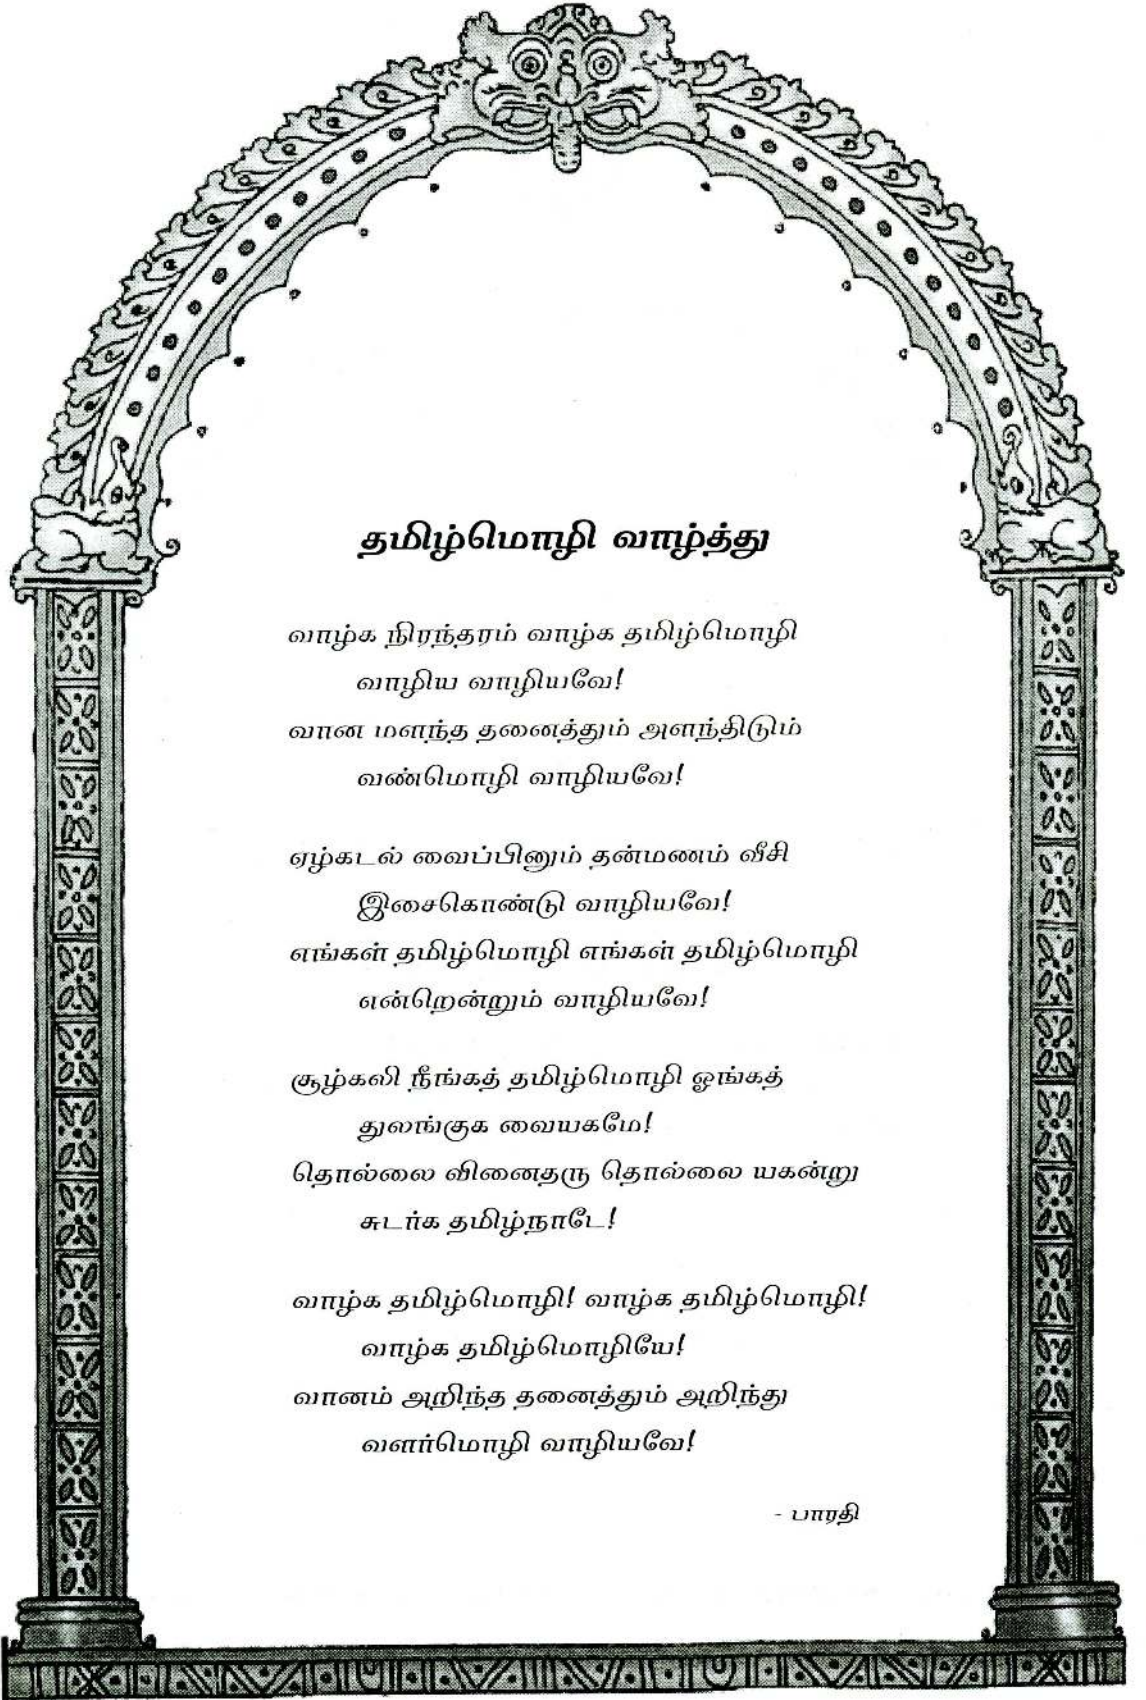 தமிழ்மொழி வாழ்த்து
வாழ்க நிரந்தரம் வாழ்க தமிழ்மொழி
வாழிய வாழியவே!
வான மளந்த தனைத்தும் அளந்திடும்
வண்மொழி வாழியவே!
ஏழ்கடல் வைப்பினும் தன்மணம் வீசி
இசைகொண்டு வாழியவே!
எங்கள் தமிழ்மொழி எங்கள் தமிழ்மொழி
என்றென்றும் வாழியவே!
சூழ்கலி நீங்கத் தமிழ்மொழி ஓங்கத்
துலங்குக வையகமே!
தொல்லை வினைதரு தொல்லை யகன்று
சுடர்க தமிழ்நாடே!
வாழ்க தமிழ்மொழி! வாழ்க தமிழ்மொழி!
வாழ்க தமிழ்மொழியே!
வானம் அறிந்த தனைத்தும் அறிந்து
வளர்மொழி வாழியவே!
- பாரதி